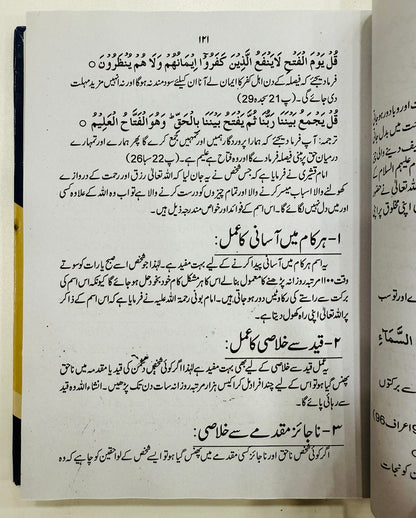 ۱۲۱
قُلْ يَوْمَ الْفَتْحِ لَا يَنْفَعُ الَّذِيْنَ كَفَرُوْٓا اِيْمَانُهُمْ وَلَا هُمْ يُنْظَرُوْنَ ○
فرما دیجئے کہ فیصلہ کے دن اہل کفر کا ایمان لے آنا ان کیلئے سودمند نہ ہوگا اور نہ انہیں مزید مہلت
دی جائے گی۔ (پ 21 سجدہ 29)
قُلْ يَجْمَعُ بَيْنَنَا رَبُّنَا ثُمَّ يَفْتَحُ بَيْنَنَا بِالْحَقِّ وَهُوَ الْفَتَّاحُ الْعَلِيْمُ ○
ترجمہ: آپ فرما دیجئے کہ ہمارا پروردگار ہمیں اور تمہیں جمع کرے گا پھر ہمارے اور تمہارے
درمیان حق پر مبنی فیصلہ فرما دے گا اور وہ فتاح ہے علیم ہے۔ (پ 22 سبا 26)
امام قشیری نے فرمایا ہے کہ جس شخص نے یہ جان لیا کہ اللہ تعالیٰ رزق اور رحمت کے دروازے
کھولنے والا اسباب میسر کرنے والا اور تمام چیزوں کو درست کرنے والا ہے تو اب وہ اللہ کے علاوہ کسی
اور میں دل نہیں لگائے گا۔ اس اسم کے فوائد اور خواص مندرجہ ذیل ہیں۔
۱- ہر کام میں آسانی کا عمل:
یہ اسم ہر کام میں آسانی پیدا کرنے کے لیے بہت مفید ہے۔ لہٰذا جو شخص اسے صبح یا رات کو سوتے
وقت ۱۱۰۰ مرتبہ روزانہ پڑھنے کا معمول بنائے گا اس کا ہر مشکل کام خود بخود حل ہو جائے گا کیونکہ اس اسم کی
برکت سے راستے کی رکاوٹیں دور ہو جاتی ہیں۔ امام بونی رحمۃ اللہ علیہ نے فرمایا ہے کہ اس اسم کے ذاکر
پر اللہ تعالیٰ اپنی راہ کھول دیتا ہے۔
۲- قید سے خلاصی کا عمل:
یہ عمل قید سے خلاصی کے لیے بھی بہت مفید ہے لہٰذا اگر کوئی شخص دشمن کی قید یا مقدمہ میں ناحق
پھنس گیا ہو تو اس کے لیے چند افراد مل کر اکیس ہزار مرتبہ روزانہ سات دن تک پڑھیں۔ انشاء اللہ وہ قید
سے رہائی پائے گا۔
۳- ناجائز مقدمے سے خلاصی:
اگر کوئی شخص ناحق اور ناجائز کسی مقدمے میں پھنس گیا ہو تو ایسے شخص کے لواحقین کو چاہیے کہ وہ